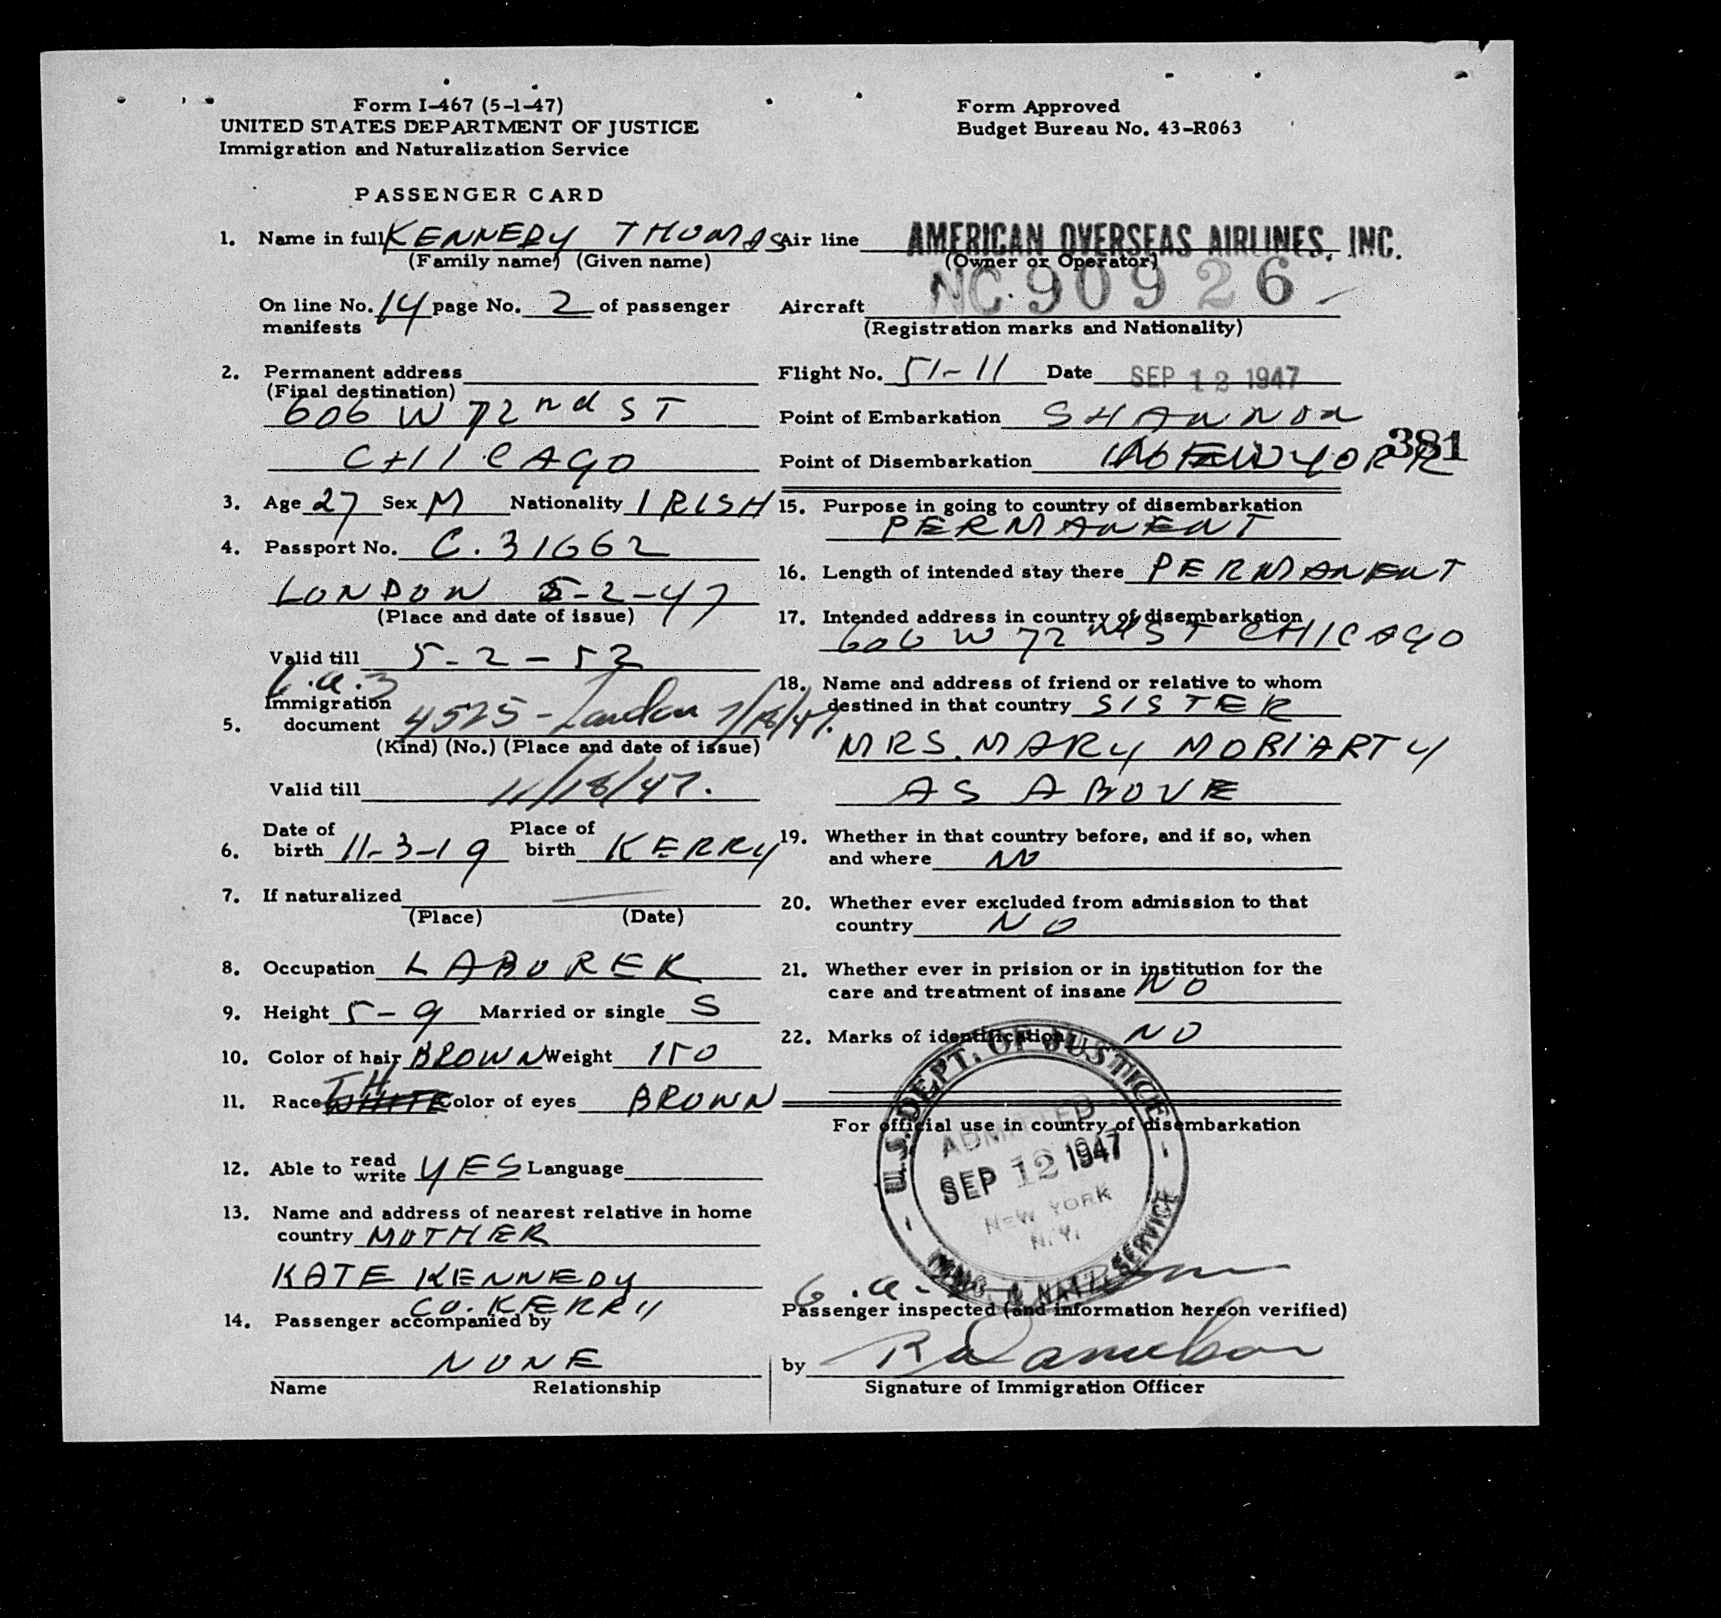 Form I-467 (5-1-47)
UNITED STATES DEPARTMENT OF JUSTICE
Immigration and Naturalization Service
Form Approved
Budget Bureau No. 43-R063
PASSENGER CARD
1. Name in full KENNEDY THOMAS
(Family name) (Given name)
On line No. 14 page No. 2 of passenger
manifests
2. Permanent address
(Final destination)
606 W 72nd ST
CHICAGO
3. Age 27 Sex M Nationality IRISH
4. Passport No. C. 31662
LONDON 5-2-47
(Place and date of issue)
Valid till 5-2-52
Immigration
5. document 4525 - London 7/18/47.
(Kind) (No.) (Place and date of issue)
Valid till 11/18/47.
Date of Place of
6. birth 11-3-19 birth KERRY
7. If naturalized
(Place) (Date)
8. Occupation LABORER
9. Height 5-9 Married or single S
10. Color of hair BROWN Weight 150
11. Race WHITE Color of eyes BROWN
12. Able to read write YES Language
13. Name and address of nearest relative in home
country MOTHER
KATE KENNEDY
CO. KERRY
14. Passenger accompanied by
NONE
Name Relationship
Air line AMERICAN OVERSEAS AIRLINES, INC.
(Owner or Operator)
Aircraft NC 90926
(Registration marks and Nationality)
Flight No. 51-11 Date SEP 12 1947
Point of Embarkation SHANNON
381
Point of Disembarkation NEW YORK
15. Purpose in going to country of disembarkation
PERMANENT
16. Length of intended stay there PERMANENT
17. Intended address in country of disembarkation
606 W 72 ST CHICAGO
18. Name and address of friend or relative to whom
destined in that country SISTER
MRS. MARY MORIARTY
AS ABOVE
19. Whether in that country before, and if so, when
and where NO
20. Whether ever excluded from admission to that
country NO
21. Whether ever in prision or in institution for the
care and treatment of insane NO
22. Marks of identification NO
For official use in country of disembarkation
U.S. DEPT. OF JUSTICE
ADMITTED
SEP 12 1947
NEW YORK
N.Y.
IMMG. & NATZ. SERVICE
Passenger inspected (and information hereon verified)
by
Signature of Immigration Officer